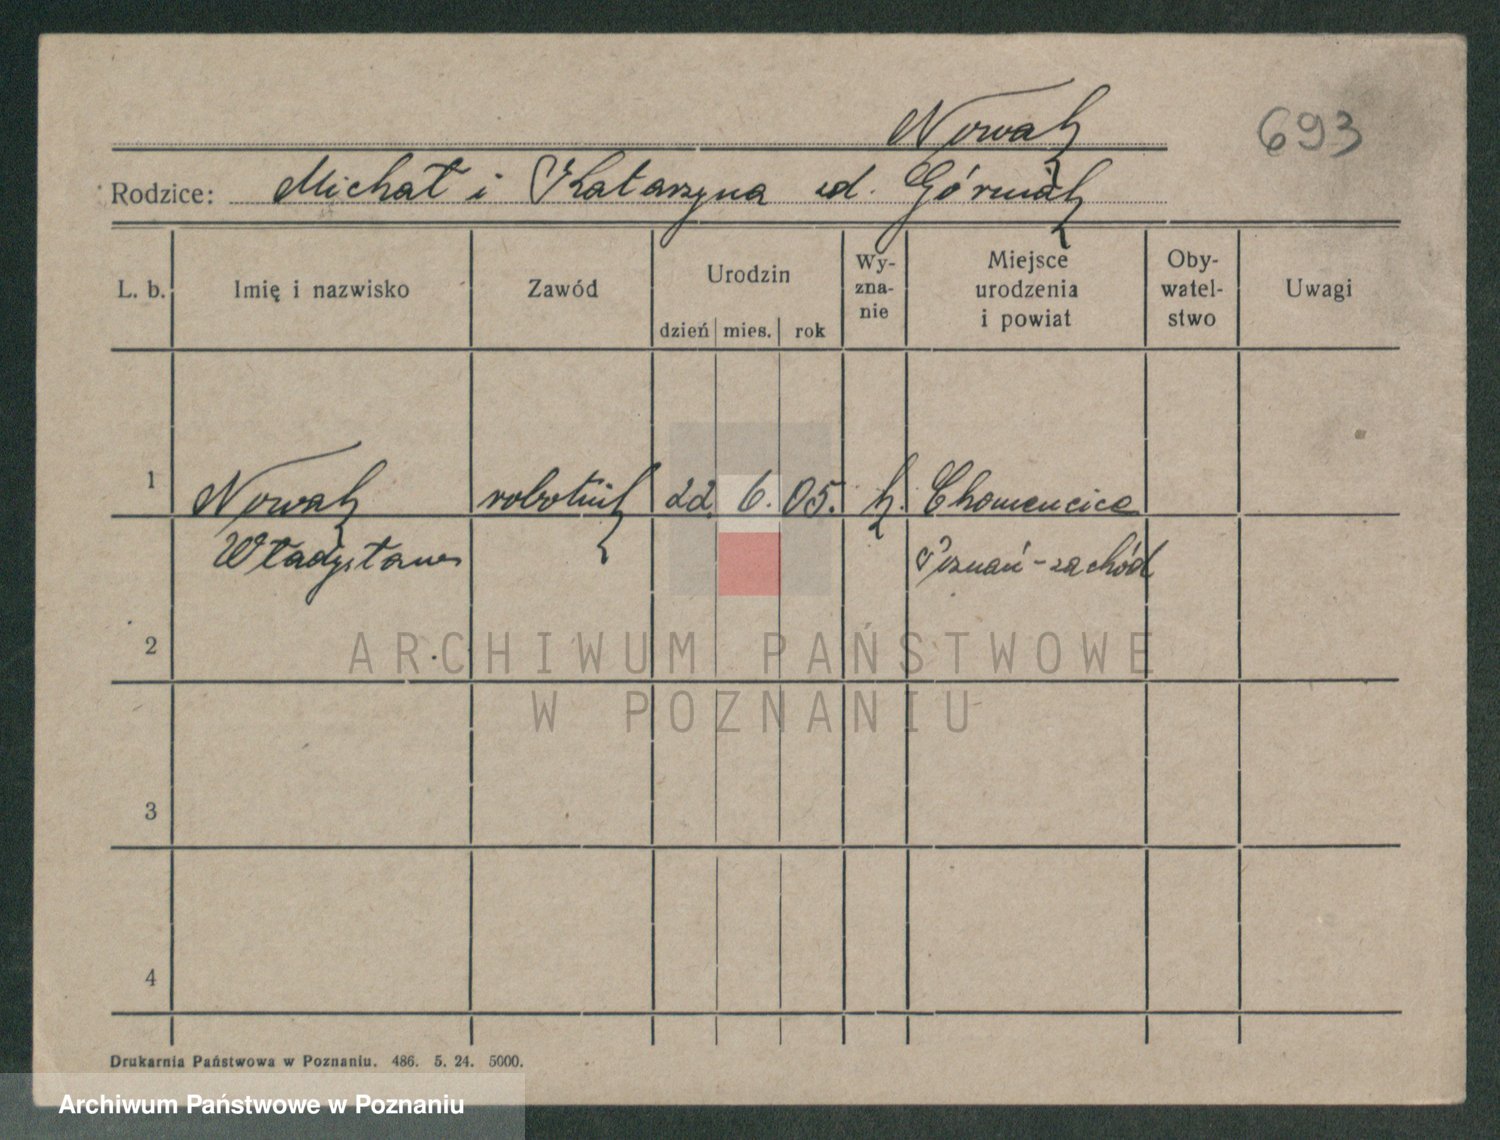 Nowak
693
Rodzice: Michał i Katarzyna zd. Górniak
L. b.
Imię i nazwisko
Zawód
Urodzin
dzień mies. rok
Wy-
zna-
nie
Miejsce
urodzenia
i powiat
Oby-
watel-
stwo
Uwagi
1 Nowak robotnik 22. 6. 05. k. Chomencice
Władysław Poznań-zachód
2
ARCHIWUM PAŃSTWOWE
W POZNANIU
3
4
Drukarnia Państwowa w Poznaniu. 486. 5. 24. 5000.
Archiwum Państwowe w Poznaniu